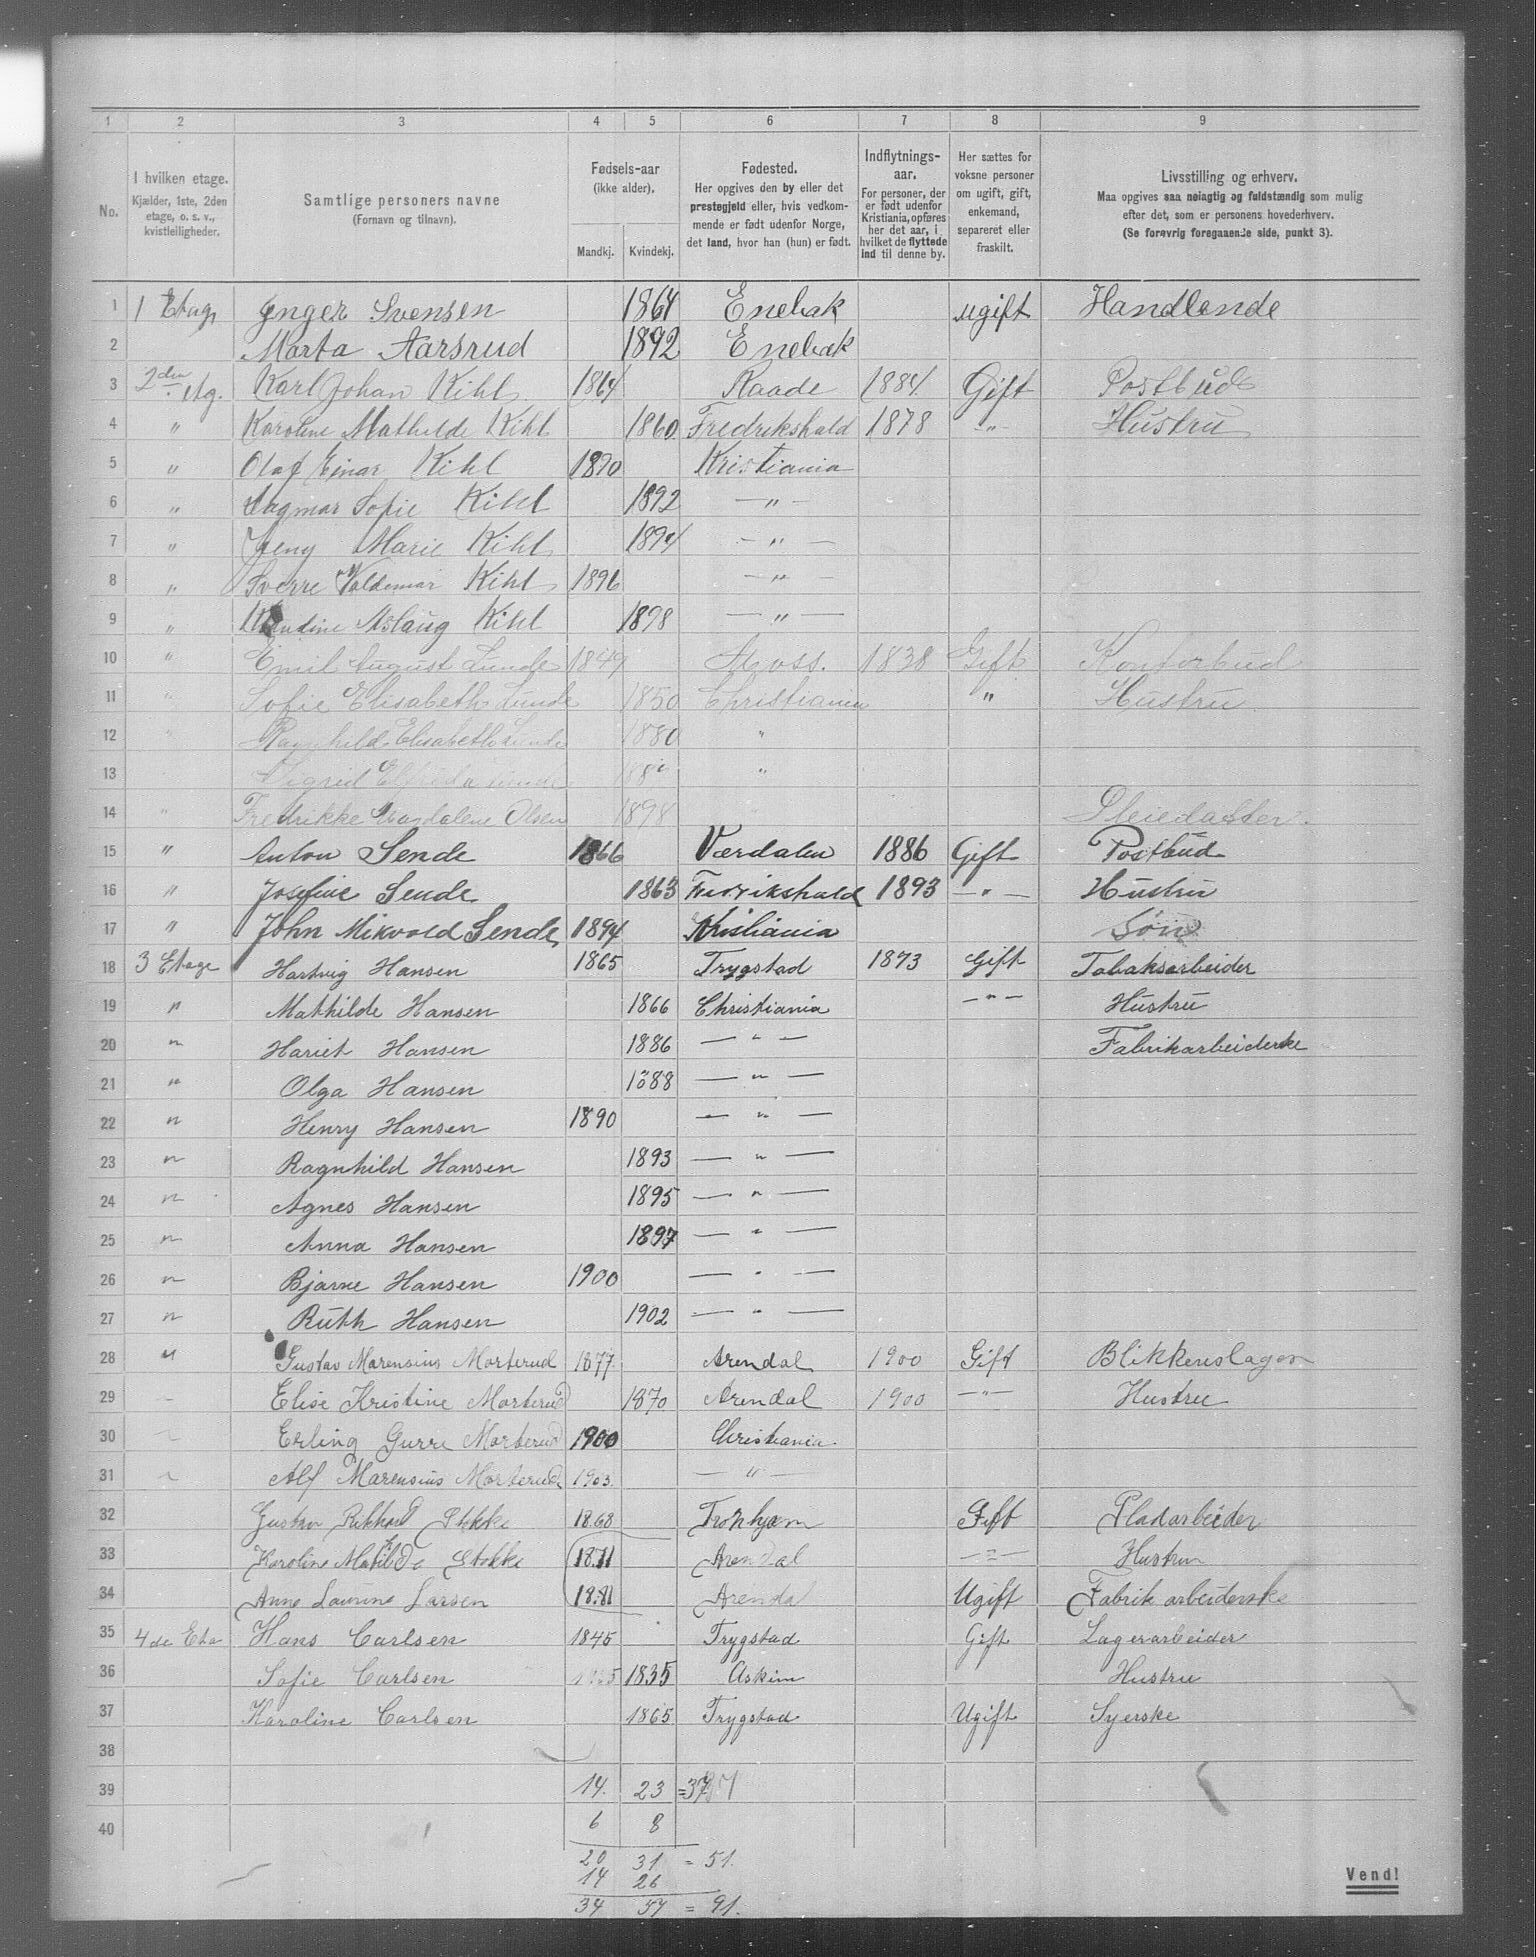 1 2 3 4 5 6 7 8 9
No.
I hvilken etage.
Kjælder, 1ste, 2den
etage, o. s. v.,
kvistleiligheder.
Samtlige personers navne
(Fornavn og tilnavn).
Fødsels-aar
(ikke alder).
Mandkj. Kvindekj.
Fødested.
Her opgives den by eller det
prestegjeld eller, hvis vedkom-
mende er født udenfor Norge,
det land, hvor han (hun) er født.
Indflytnings-
aar.
For personer, der
er født udenfor
Kristiania, opføres
her det aar, i
hvilket de flyttede
ind til denne by.
Her sættes for
voksne personer
om ugift, gift,
enkemand,
separeret eller
fraskilt.
Livsstilling og erhverv.
Maa opgives saa nøiagtig og fuldstændig som mulig
efter det, som er personens hovederhverv.
(Se forøvrig foregaaende side, punkt 3).
1 1 Etag Inger Svensen 1864 Enebak ugift Handlende
2 Marta Aarsrud 1892 Enebak
3 2den Etg. Karl Johan Kihl 1864 Raade 1884 Gift Postbud
4 " Karoline Mathilde Kihl 1860 Fredrikshald 1878 -"- Hustru
5 " Olaf Einar Kihl 1890 Kristiania
6 " Dagmar Sofie Kihl 1892 -"-
7 " Jeny Marie Kihl 1894 -"-
8 " Sverre Valdemar Kihl 1896 -"-
9 " Aslaug Kihl 1898 -"-
10 " Emil August Lunde 1849 Moss. 1838 Gift Kontorbud
11 " Sofie Elisabeth Lunde 1850 Christiania " Hustru
12 " Ragnhild Elisabeth Lunde 1880 "
13 Sigrid Elfrida Lunde "
14 " Fredrikke Magdalene Olsen 1898 Pleiedatter.
15 " Anton Sende 1866 Værdalen 1886 Gift Postbud
16 " Josefine Sende 1863 Fredrikshald 1893 -"- Hustru
17 " John Mikvold Sende 1894 Kristiania Søn
18 3 Etage Hartvig Hansen 1865 Trygstad 1873 Gift Tobaksarbeider
19 " Mathilde Hansen 1866 Christiania -"- Hustru
20 " Hariet Hansen 1886 -"- Fabrikarbeiderske
21 " Olga Hansen 1888 -"-
22 " Henry Hansen 1890 -"-
23 " Ragnhild Hansen 1893 -"-
24 " Agnes Hansen 1895 -"-
25 " Anna Hansen 1897 -"-
26 " Bjarne Hansen 1900 -"-
27 " Ruth Hansen 1902 -"-
28 " Gustav Marensius Morterud 1877 Arendal 1900 Gift Blikkenslager
29 Elise Kristine Morterud 1870 Arendal 1900 -"- Hustru
30 Erling Gurre Morterud 1900 Christiania
31 Alf Marensius Morterud 1903 -"-
32 Gustav Rikhard Stokke 1868 Tronhjem Gift Pladarbeider
33 Karoline Matilde Stokke 1871 Arendal -"- Hustru
34 Anne Laurine Larsen 1881 Arendal Ugift Fabrik arbeiderske
35 4de Eta Hans Carlsen 1845 Trygstad Gift Lagerarbeider
36 Sofie Carlsen 1835 Askim Hustru
37 Karoline Carlsen 1865 Trygstad Ugift Syerske
38
39 14. 23 =37
40 6 8
20 31 = 51.
14 26
34 57 = 91.
Vend!